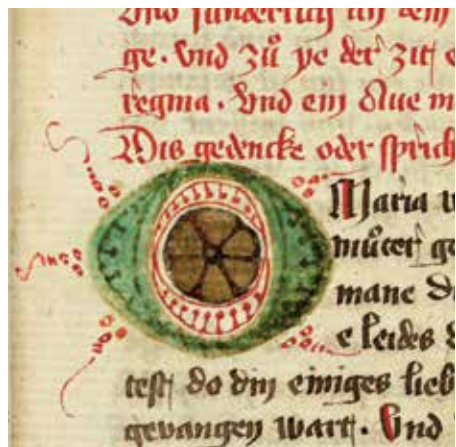 vnd sunderlich in dem
ge. vnd zů ye der zitt e
regina. vnd ein Aue m
Dis gedencke oder sprich
Maria v
můter ge
mane di
e leides d
test do din einiges lieb
gevangen wart. Vnd